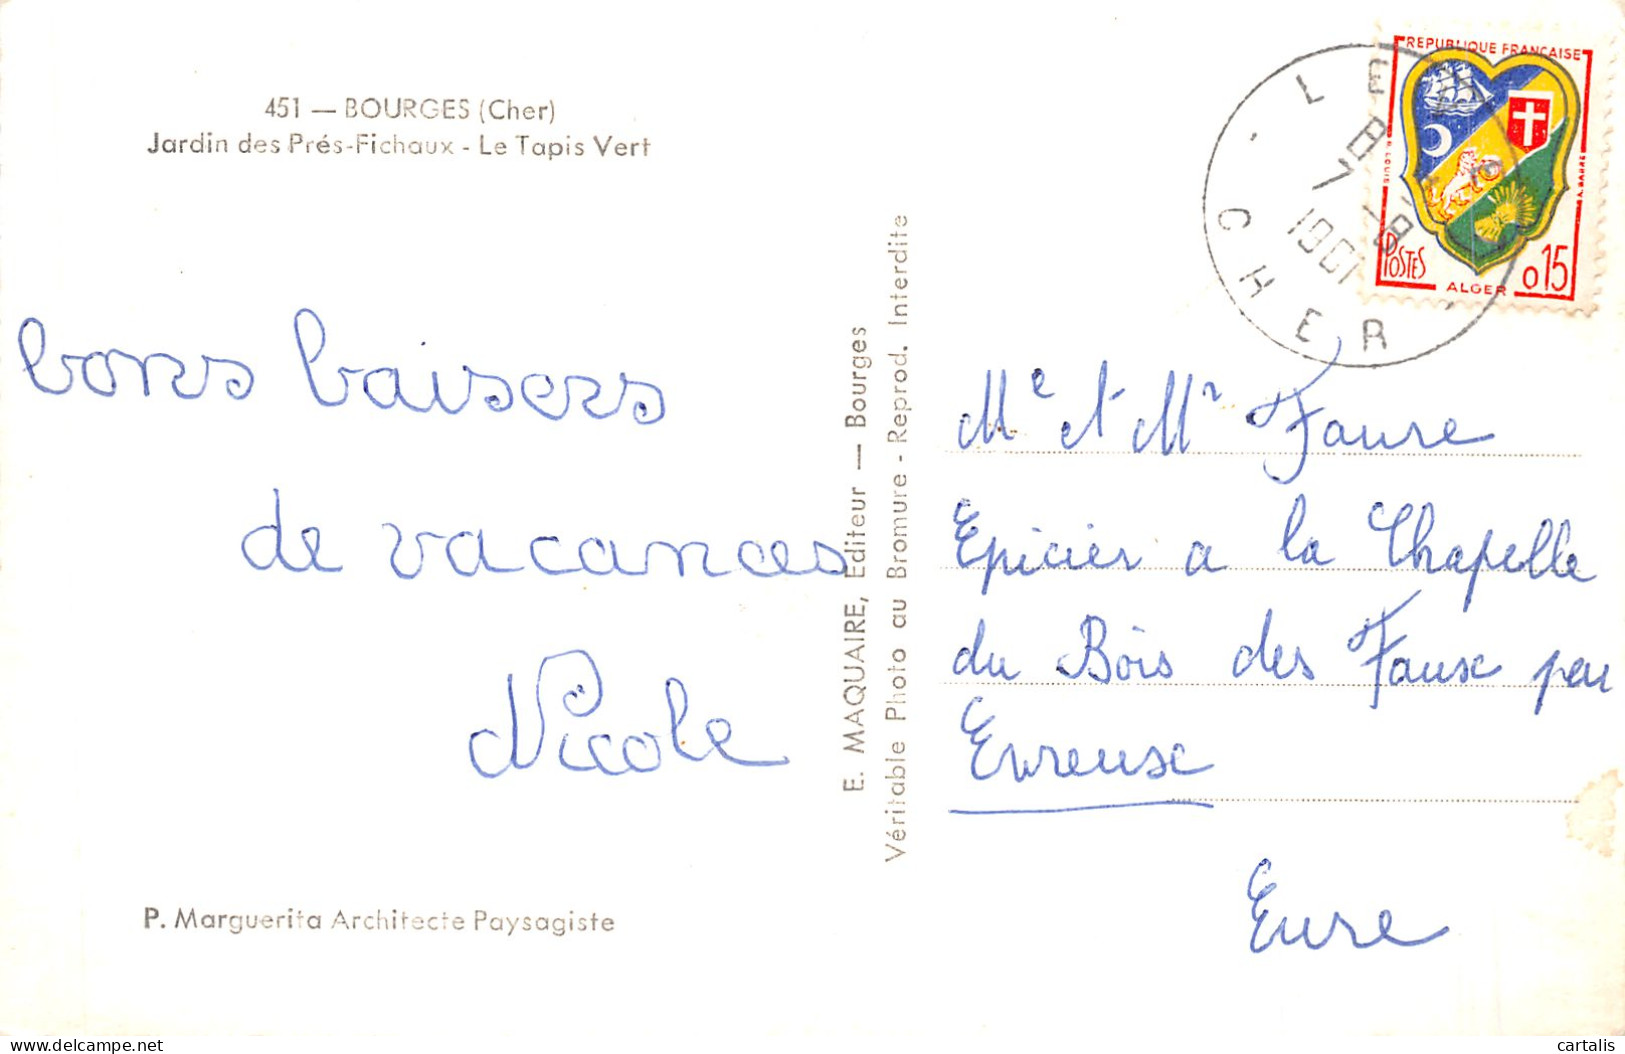 451 — BOURGES (Cher)
Jardin des Prés-Fichaux - Le Tapis Vert
bons baisers
de vacances
Nicole
P. Marguerita Architecte Paysagiste
E. MAQUAIRE, Editeur — Bourges
Véritable Photo au Bromure - Reprod. Interdite
REPUBLIQUE FRANÇAISE
POSTES
ALGER
0,15
LE
CHER
Me et Mr Faure
Epicier a la Chapelle
du Bois des Faux par
Evreuse
Eure
cartalis